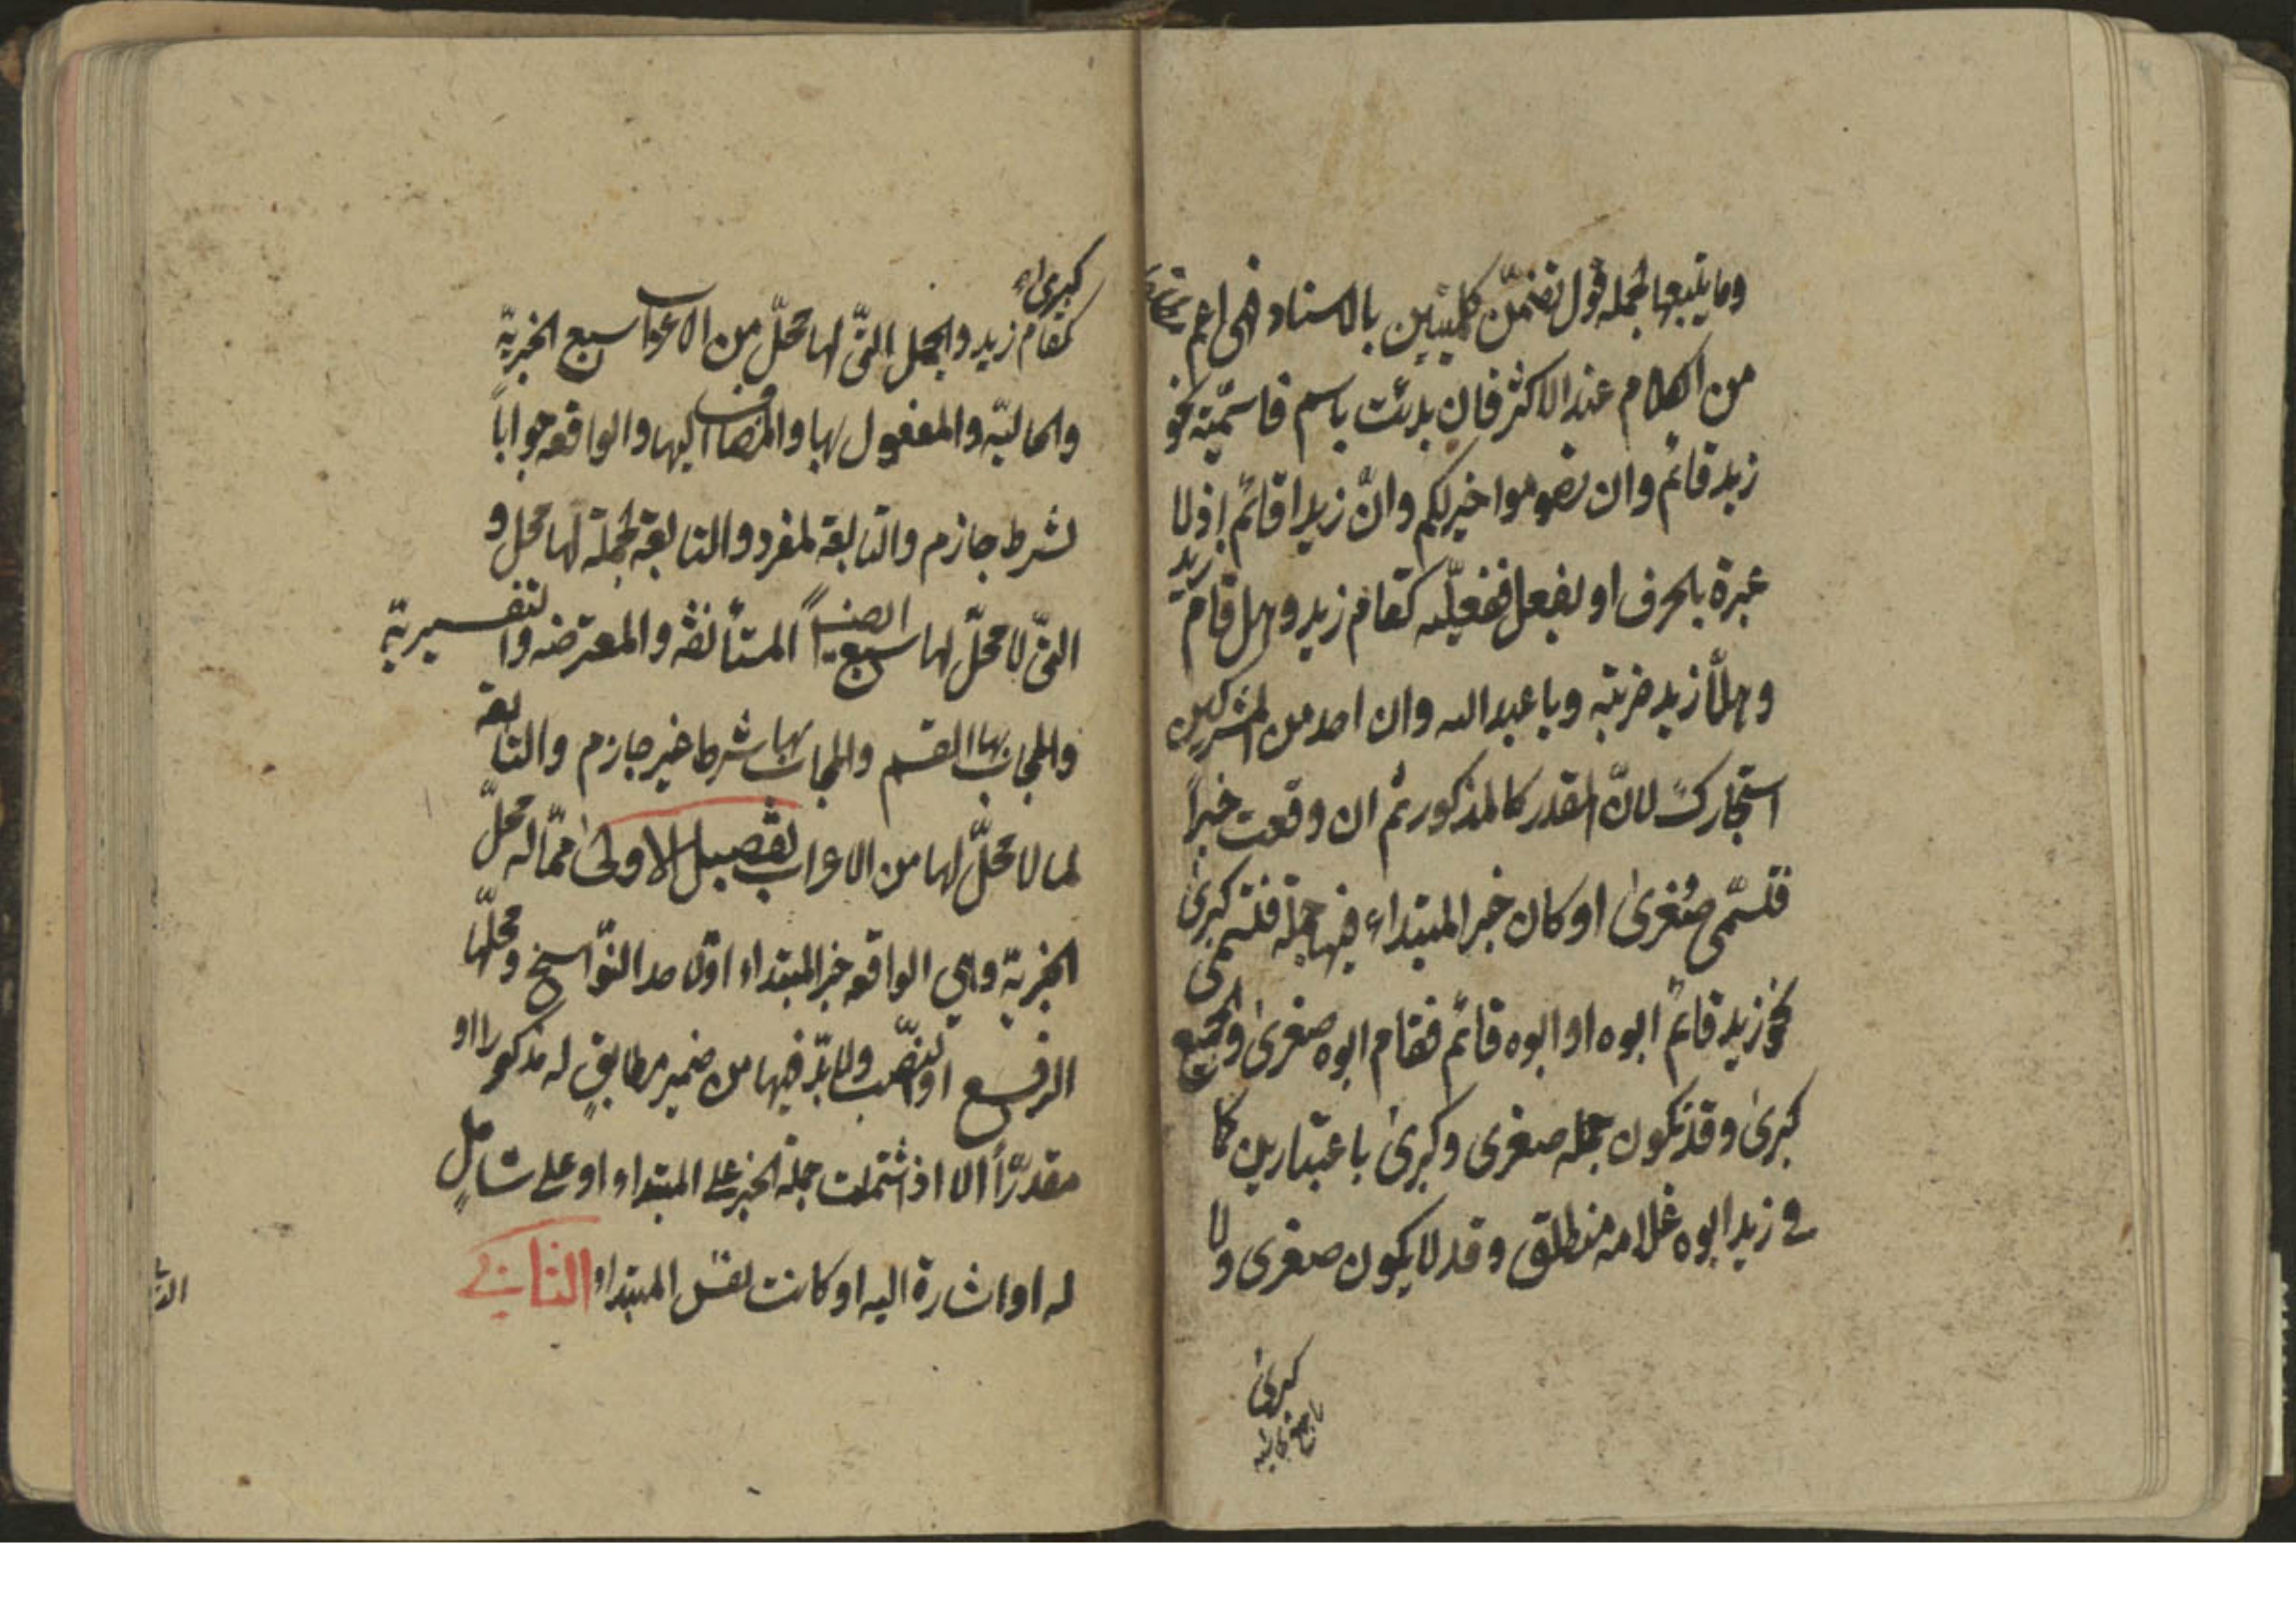 وما يتبعها الجملة قول تضمّن كلمتين بالاسناد فهي اعم
من الكلام عند الاكثر فان بدئت باسم فاسمّية نحو
زيد قائم وان تصوموا خير لكم وانّ زيدا قائم اذ لا
عبرة بالحرف او بفعل ففعليّه كقام زيد وهل قام زيد
وهلّا زيد ضربته ويا عبد الله وان احد من المشركين
استجارك لانّ المقدر كالمذكور ثم ان وقعت خبراً
فتسمّى صُغرىٰ او كان خبر المبتداء فيها جملة فتسمى كبرىٰ
نحو زيد قائم ابوه او ابوه قائم فقام ابوه صغرىٰ والجميع
كبرىٰ وقد تكون جمله صغرى وكبرىٰ باعتبارين كما
في زيد ابوه غلامه منطلق وقد لا يكون صغرى ولا
كبرىٰ
كبرىاء
كقام زيد والجمل التىّ لها محلّ من الاعراب سبع الخبريّة
والحاليّه والمفعول بها والمضاف اليها والواقعه جواباً
لشرط جازم والتابعة لمفرد والتابعة لجملة لها محل و
التىّ لا محلّ لها سبع ايضاً المستأنفه والمعترضه والتفسيريّة
والمجاب بها القسم والمجاب بها شرط غير جازم والتابعة
لما لا محلّ لها من الاعراب تفصيل الاولىٰ ممّا له محلّ
الخبريّة وهي الواقعه خبر المبتداء او لاحد النوّاسخ ومحلّها
الرفع او النصّب ولابدّ فيها من ضمير مطابقٍ له مذكورا او
مقدرّاً الا اذ اشتملت جملة الخبر على المبتداء او على شاملٍ
له او اشارة اليه او كانت نفس المبتداء الثانية